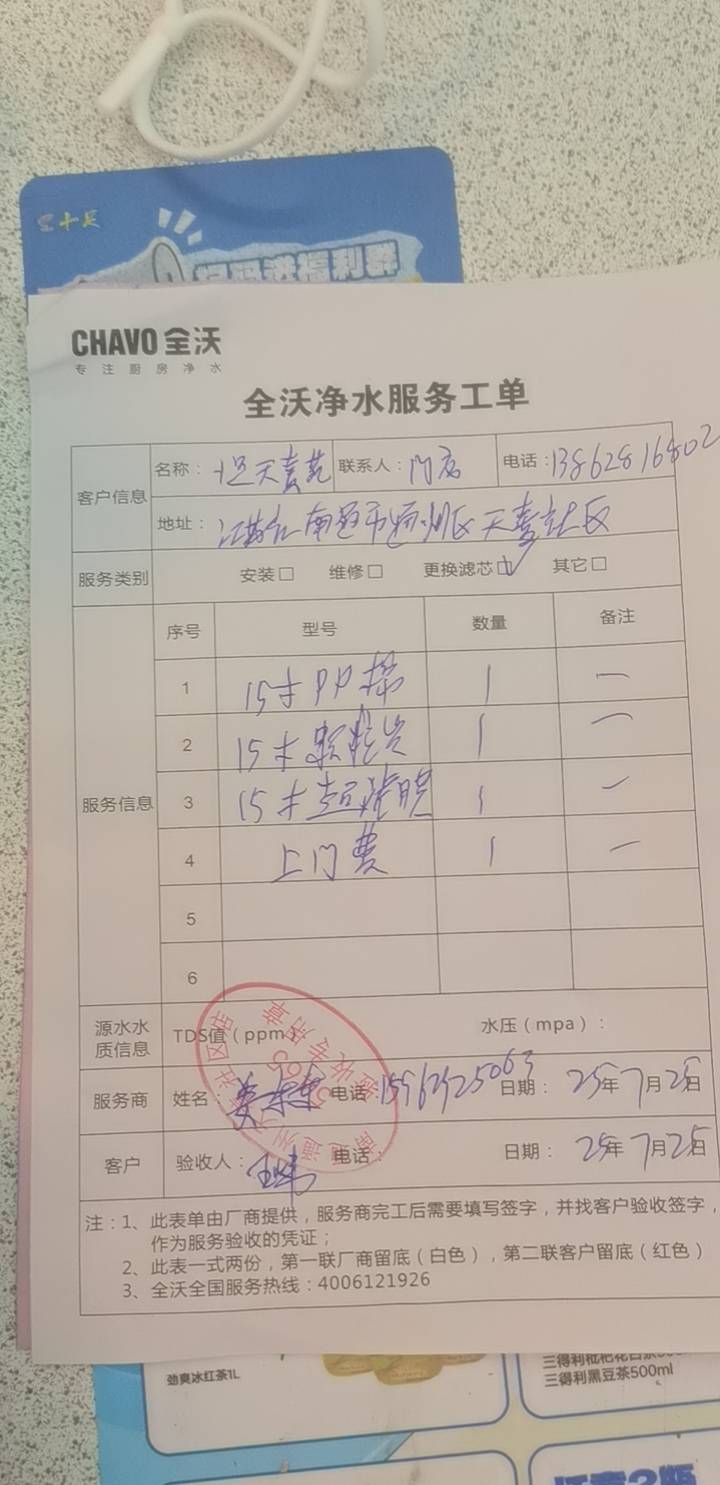 十足
福利群
CHAVO 全沃
专注厨房净水
全沃净水服务工单
客户信息
名称：
联系人：门店
电话：13862816802
地址：江苏省南通市通州区天喜社区
服务类别 安装□ 维修□ 更换滤芯□✓ 其它□
服务信息
序号 型号 数量 备注
1 15寸PP棉 1 一
2 15寸 1 一
3 15寸超滤膜 1 一
4 上门费 1 一
5
6
源水水质信息 TDS值（ppm 水压（mpa）：
服务商 姓名： 电话 日期：25年7月25日
客户 验收人：王 电话： 日期：25年7月25日
注：1、此表单由厂商提供，服务商完工后需要填写签字，并找客户验收签字，
作为服务验收的凭证；
2、此表一式两份，第一联厂商留底（白色），第二联客户留底（红色）
3、全沃全国服务热线：4006121926
劲爽冰红茶1L
三得利黑豆茶500ml